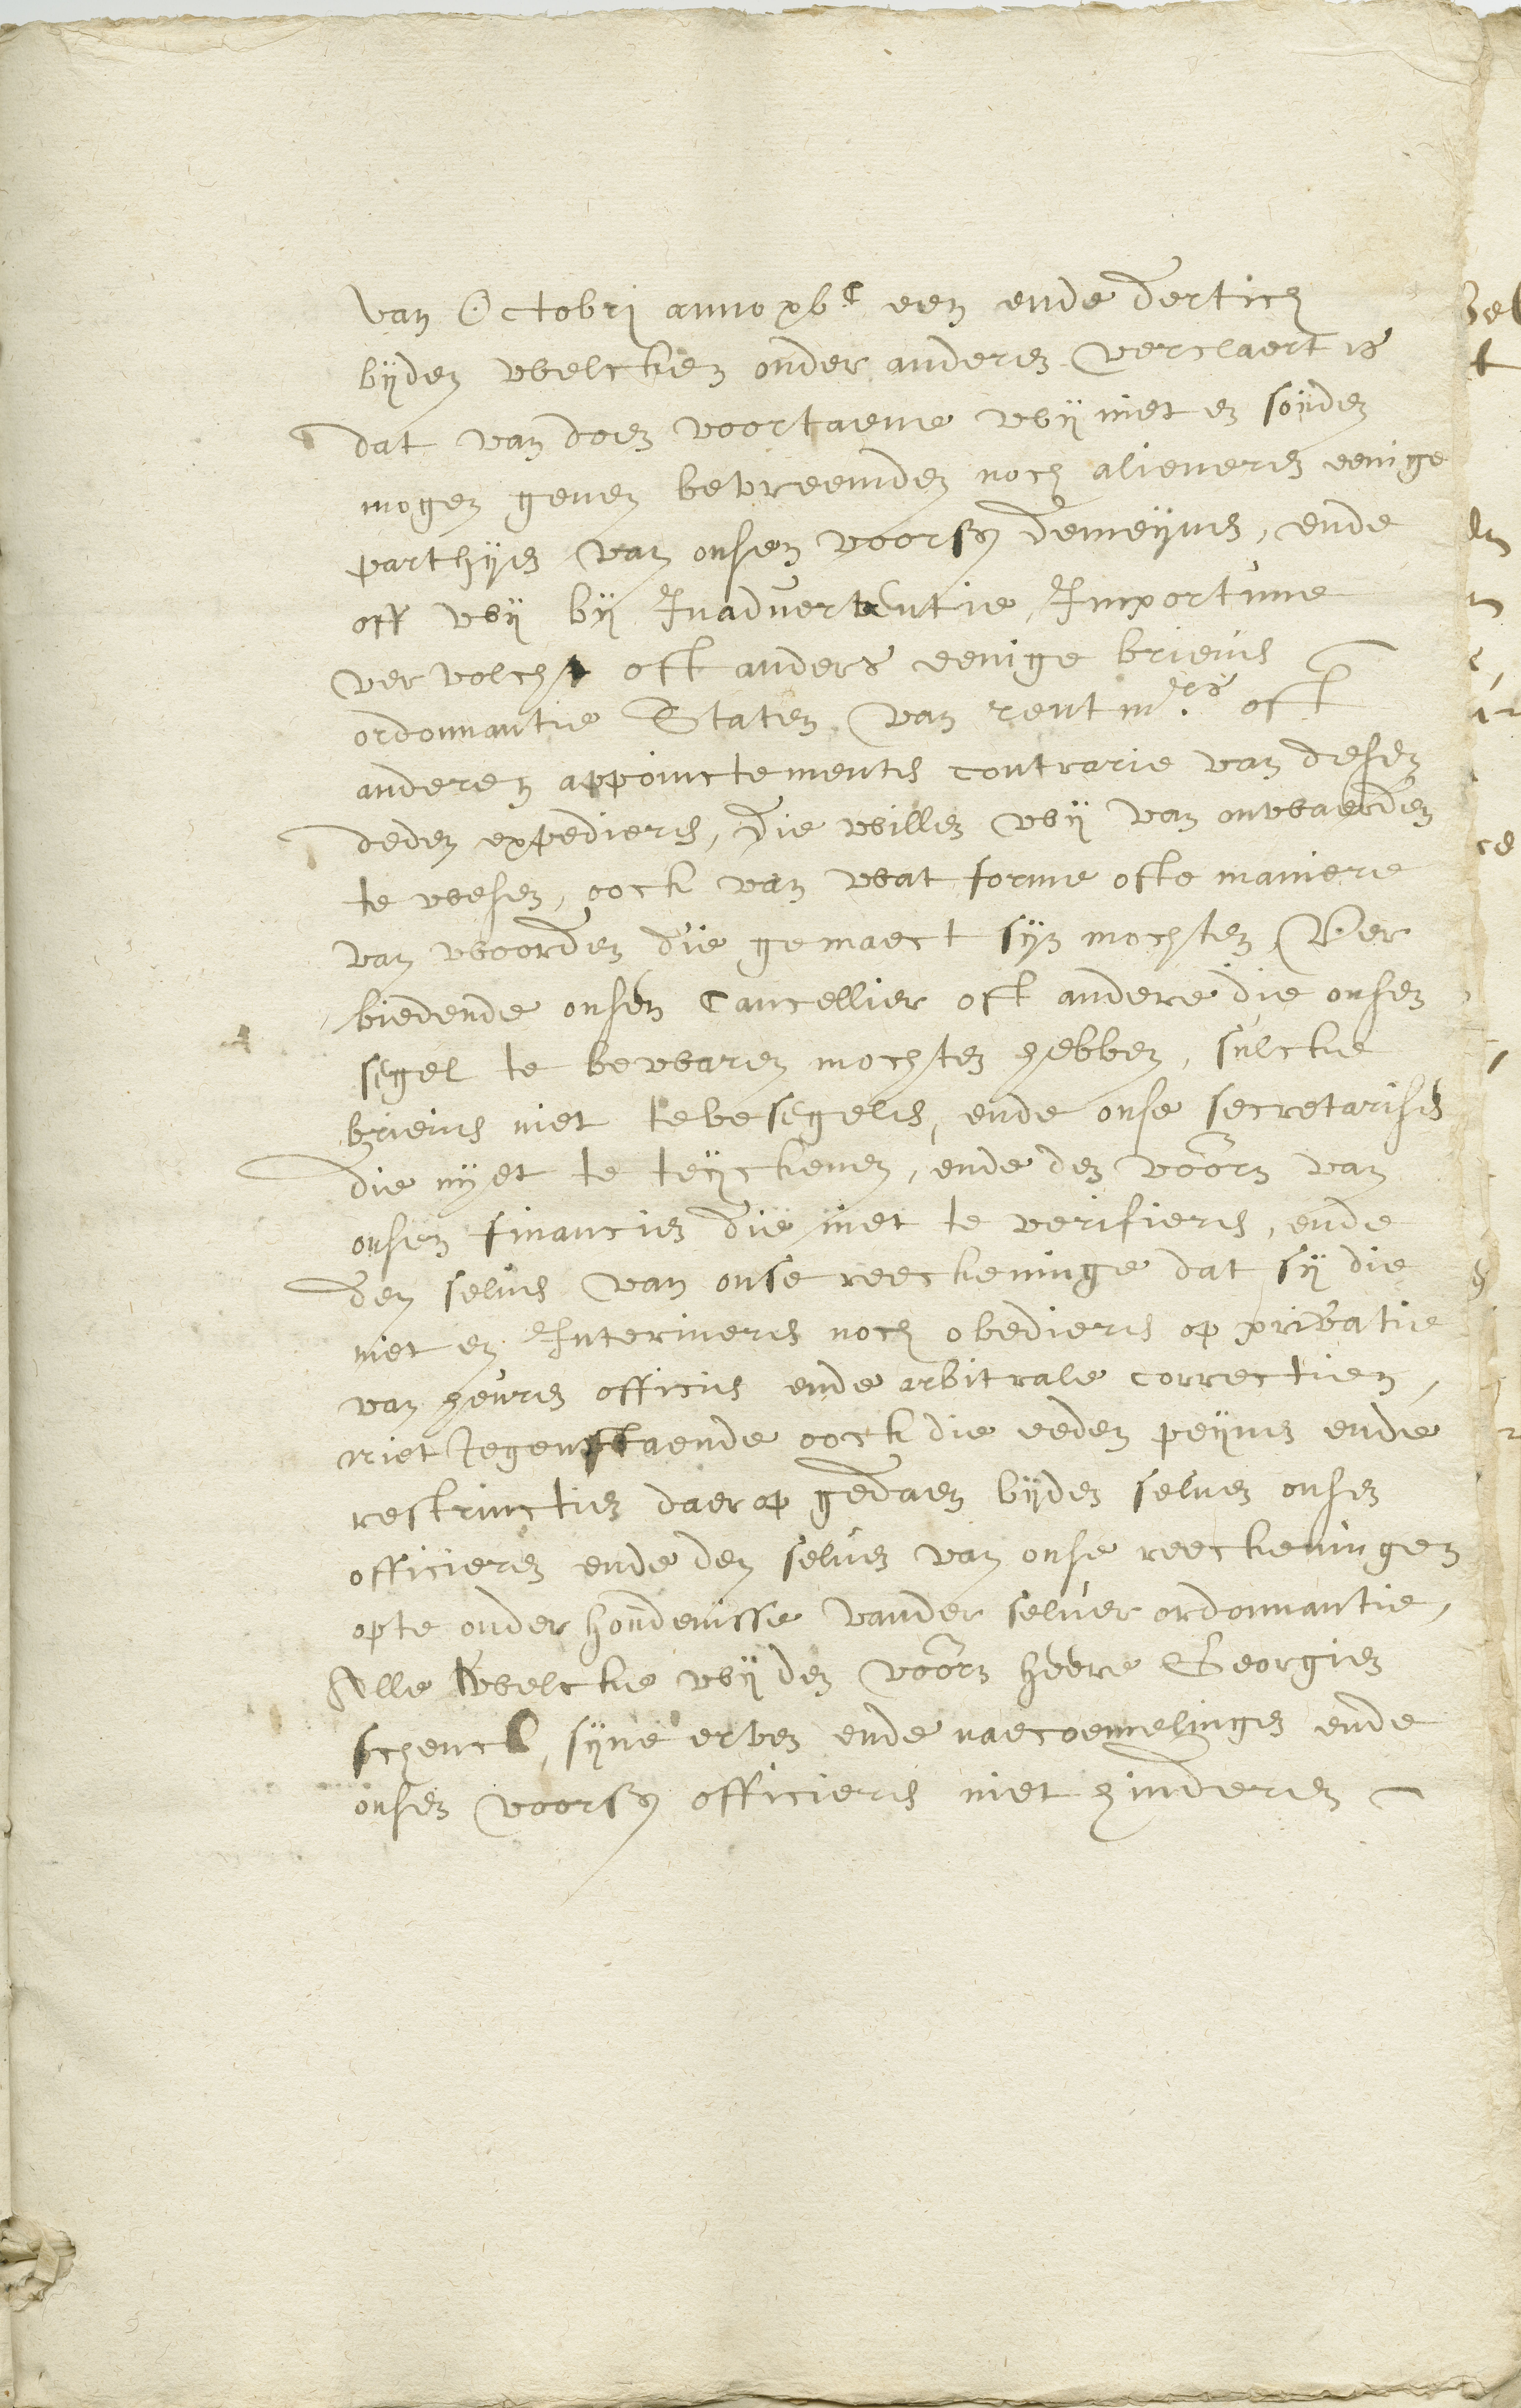 van Octobri anno xvc een ende dertich
bijden welcken onder anderen verclaert is
dat van doen voortaene wij niet en souden
mogen geven bevreemden noch alieneren eenige
parthyen van onsen voors demeynen, ende
off wij bij Inadvertentie, Importune
vervolch oft anders eenige brieven
ordonnantie Staten van rentmrs oft
anderen appoinctementen contrarie van desen
deden expedieren, die willen wij van onwaerden
te wesen, oock van wat forme ofte maniere
van woorden die gemaect sijn mochten, Ver
biedende onsen Cancellier oft andere die onsen
segel te bewaren mochten hebben, sulcke
brieven niet te besegelen, ende onse secretarisen
die nyet te teijckenen, ende den voorn van
onsen financien die niet te verifieren, ende
den selven van onse reeckeninge dat sij die
niet en Interineren noch obedieren op privatie
van heuren officien ende arbitrale correctien,
niet Jegenstaende oock die eeden peynen ende
restrinctien daer op gedaen bijden selven onsen
officieren ende den selven van onse reeckeningen
opte onderhoudenisse vander selver ordonnantie,
Alle welcke wij den voorn heere Georgien
schenck, sijne erven ende naecoemelingen ende
onsen voors officieren niet hinderen